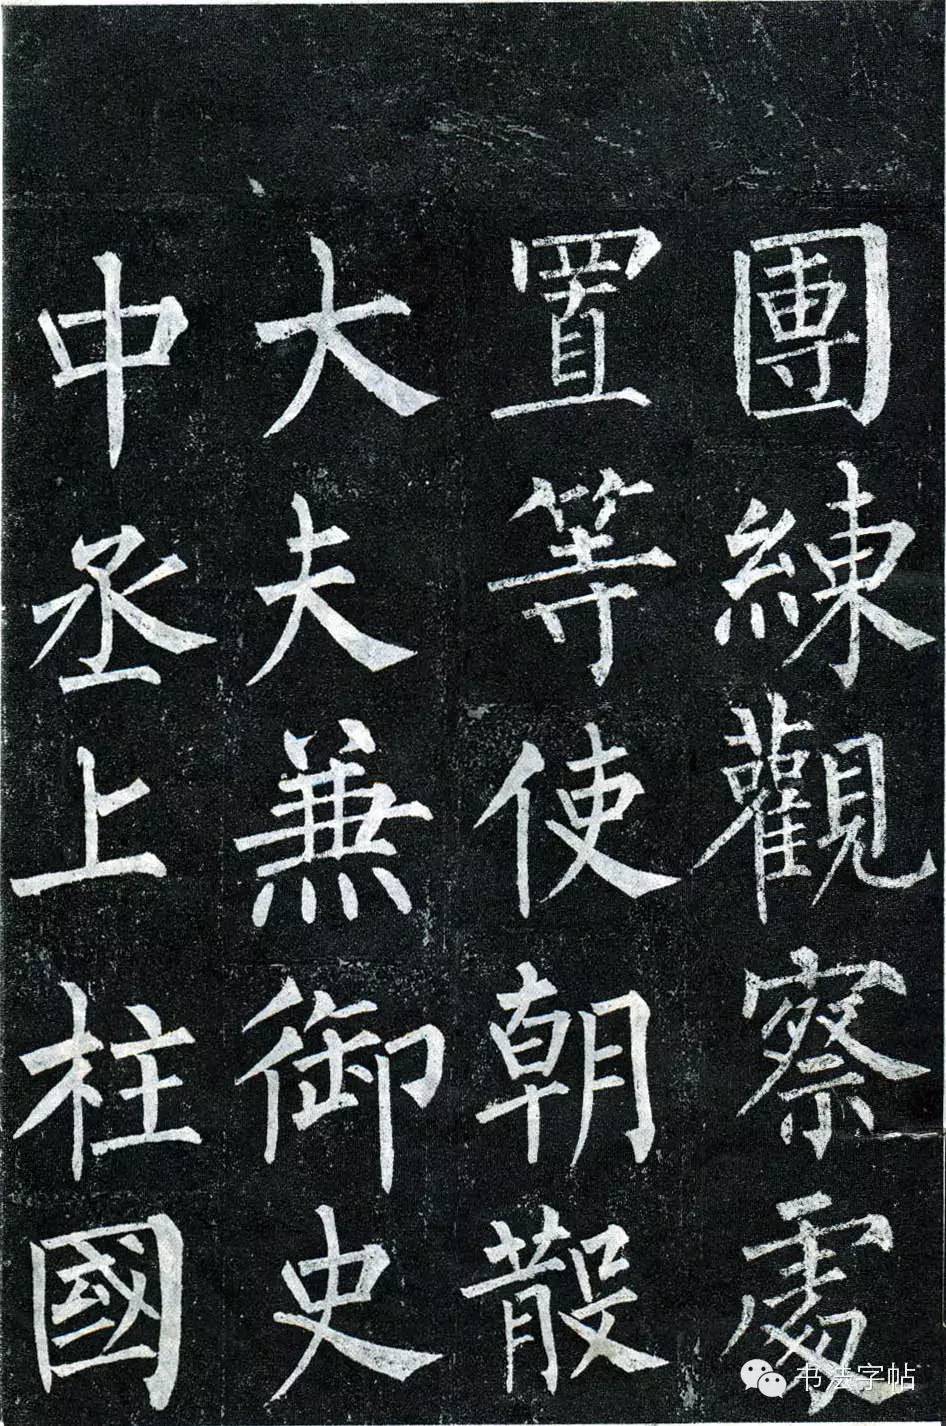 團練觀察處
置等使朝散
大夫兼御史
中丞上柱國
书法字帖